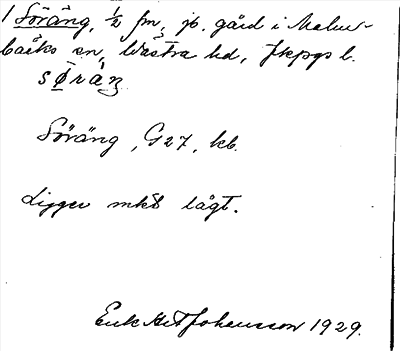 1 Söräng, ½ fm, jb. gård i Malm-
bäcks sn, Västra hd, Jkpgs l.
sørän
Söräng, G27, kb.
Ligger mkt lågt.
Erik Johansson 1929.